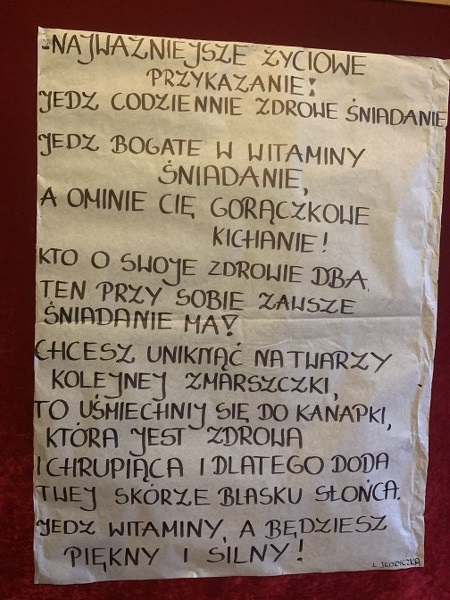 -NAJWAŻNIEJSZE ŻYCIOWE
PRZYKAZANIE:
JEDZ CODZIENNIE ZDROWE ŚNIADANIE
JEDZ BOGATE W WITAMINY
ŚNIADANIE,
A OMINIE CIĘ GORĄCZKOWE
KICHANIE!
KTO O SWOJE ZDROWIE DBA,
TEN PRZY SOBIE ZAWSZE
ŚNIADANIE MA!
CHCESZ UNIKNĄĆ NA TWARZY
KOLEJNEJ ZMARSZCZKI,
TO UŚMIECHNIJ SIĘ DO KANAPKI,
KTÓRA JEST ZDROWA
I CHRUPIĄCA I DLATEGO DODA
TWEJ SKÓRZE BLASKU SŁOŃCA.
JEDZ WITAMINY, A BĘDZIESZ
PIĘKNY I SILNY!